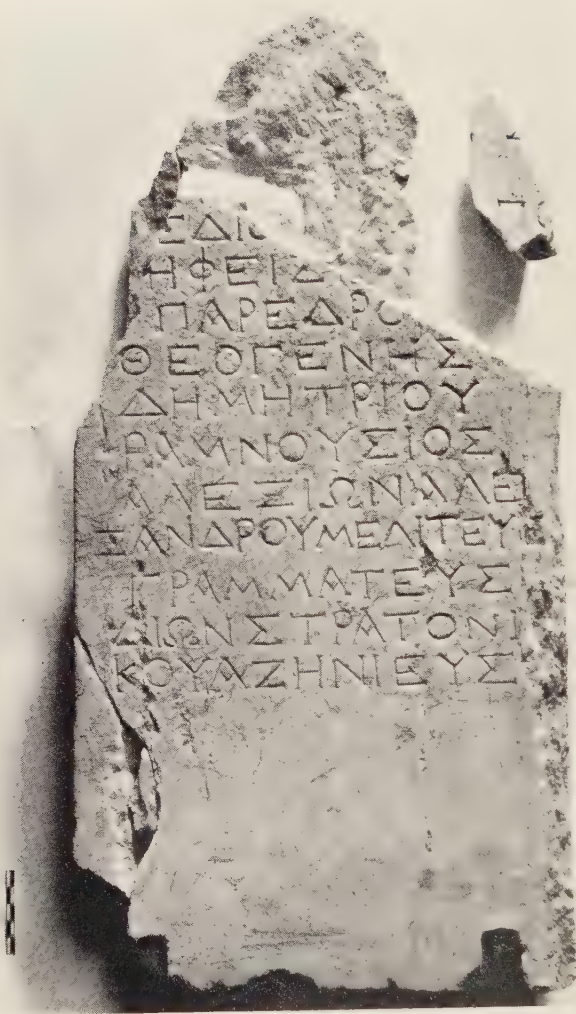 ΕΔΙ
ΗΦΕΙΔ
ΠΑΡΕΔΡΟ
ΘΕΟΓΕΝΗΣ
ΔΗΜΗΤΡΙΟΥ
ΡΑΜΝΟΥΣΙΟΣ
ΑΛΕΞΙΩΝΑΛΕ
ΞΑΝΔΡΟΥΜΕΛΙΤΕΥ
ΓΡΑΜΜΑΤΕΥΣ
ΔΙΩΝΣΤΡΑΤΟΝΙ
ΚΟΥΑΖΗΝΙΕΥΣ